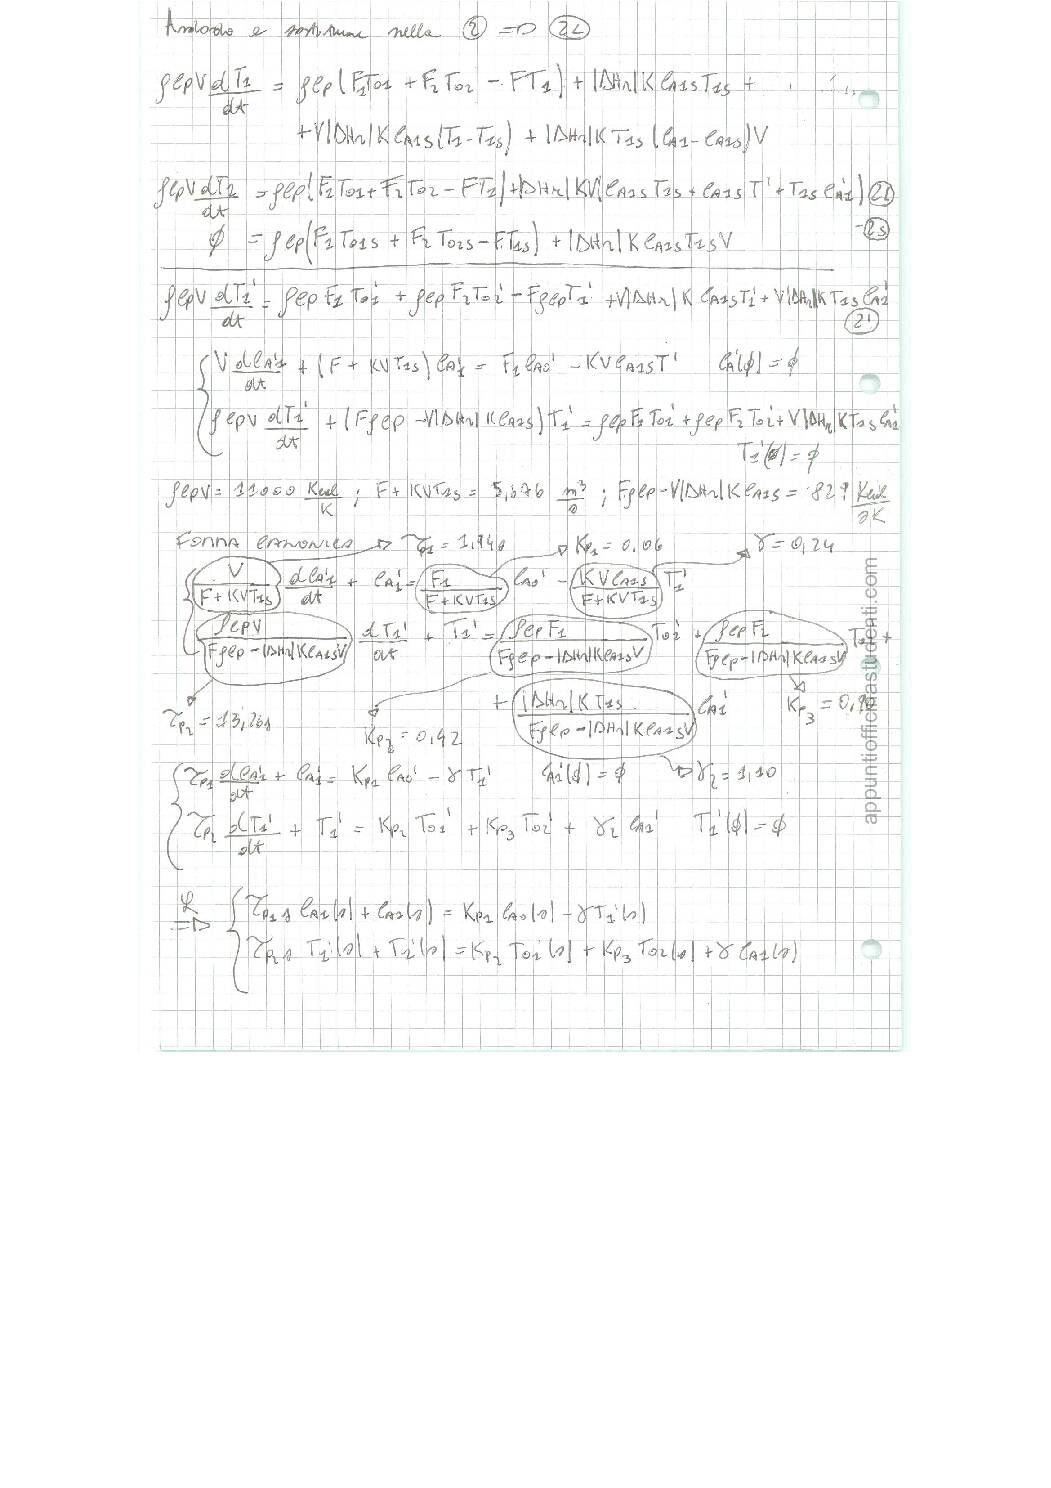 Andando e sostituire nella ② => ②L
ρcpV dT1/dt = ρcp(F1T01 + F2T02 - FT1) + |ΔHr|K CA1sT1s +
+V|ΔHr|K CA1s(T1-T1s) + |ΔHr|K T1s (CA1-CA1s)V
ρcpV dT1/dt = ρcp(F1T01+F2T02-FT1)+|ΔHr|KV(CA1sT1s+CA1sT'+T1sCA1') ②L
ϕ = ρcp(F1T01s + F2T02s-FT1s) + |ΔHr|K CA1sT1sV -②s
ρcpV dT1'/dt = ρcpF1T01' + ρcpF2T02' - FρcpT1' +V|ΔHr|K CA1sT1' + V|ΔHr|K T1s CA1'
②'
V dCA1'/dt + (F + KVT1s) CA1' = F1CA0' - KVCA1sT' CA'(ϕ) = ϕ
ρcpV dT1'/dt + (Fρcp -V|ΔHr|KCA1s)T1' = ρcpF1T01' + ρcpF2T02' + V|ΔHr|KT1sCA1'
T1'(ϕ) = ϕ
ρcpV = 11000 Kcal/K ; F+KVT1s = 5,676 m³/s ; Fρcp-V|ΔHr|KCA1s = 829 Kcal/sK
FORMA CANONICA τp1 = 1,940 Kp1 = 0,06 γ = 0,24
V/(F+KVT1s) dCA1'/dt + CA1' = F1/(F+KVT1s) CA0' - KVCA1s/(F+KVT1s) T1'
ρcpV/(Fρcp-|ΔHr|KCA1sV) dT1'/dt + T1' = ρcpF1/(Fρcp-|ΔHr|KCA1sV) T01' + ρcpF2/(Fρcp-|ΔHr|KCA1sV) T02' +
+ |ΔHr|KT1s/(Fρcp-|ΔHr|KCA1sV) CA1'
τp2 = 13,261 Kp2 = 0,42 Kp3 = 0,
τp1 dCA1'/dt + CA1' = Kp1 CA0' - γT1' CA1'(ϕ) = ϕ γ2 = 1,10
τp2 dT1'/dt + T1' = Kp2 T01' + Kp3 T02' + γ2 CA1' T1'(ϕ) = ϕ
ℒ => τp1 s CA1(s) + CA1(s) = Kp1 CA0(s) - γT1'(s)
τp2 s T1'(s) + T1'(s) = Kp2 T01'(s) + Kp3 T02(s) + γ CA1(s)
appuntiofficinastudenti.com